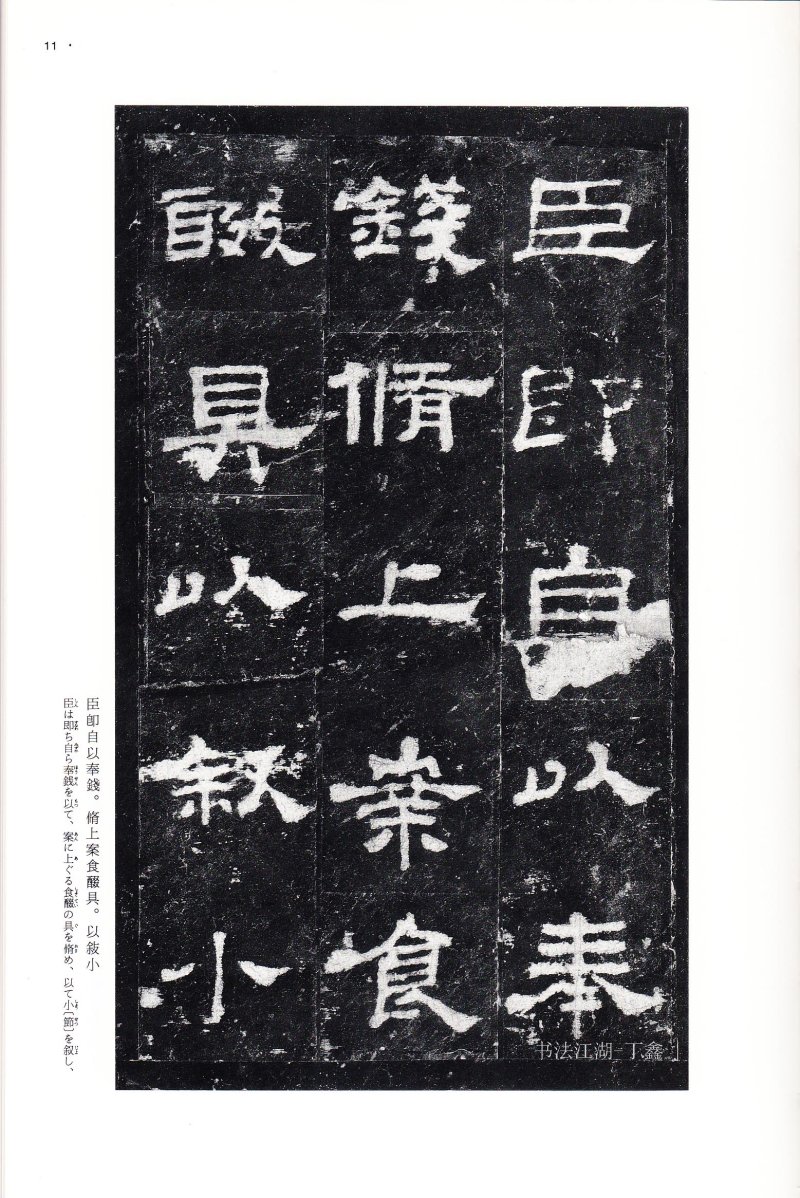 11
臣即自以奉
錢脩上案食
醊具以叙小
臣卽自以奉錢。脩上案食醊具。以敍小
臣は即ち自ら奉銭を以て、案に上ぐる食醊の具を脩め、以て小〔節〕を叙し、
书法江湖-丁鑫